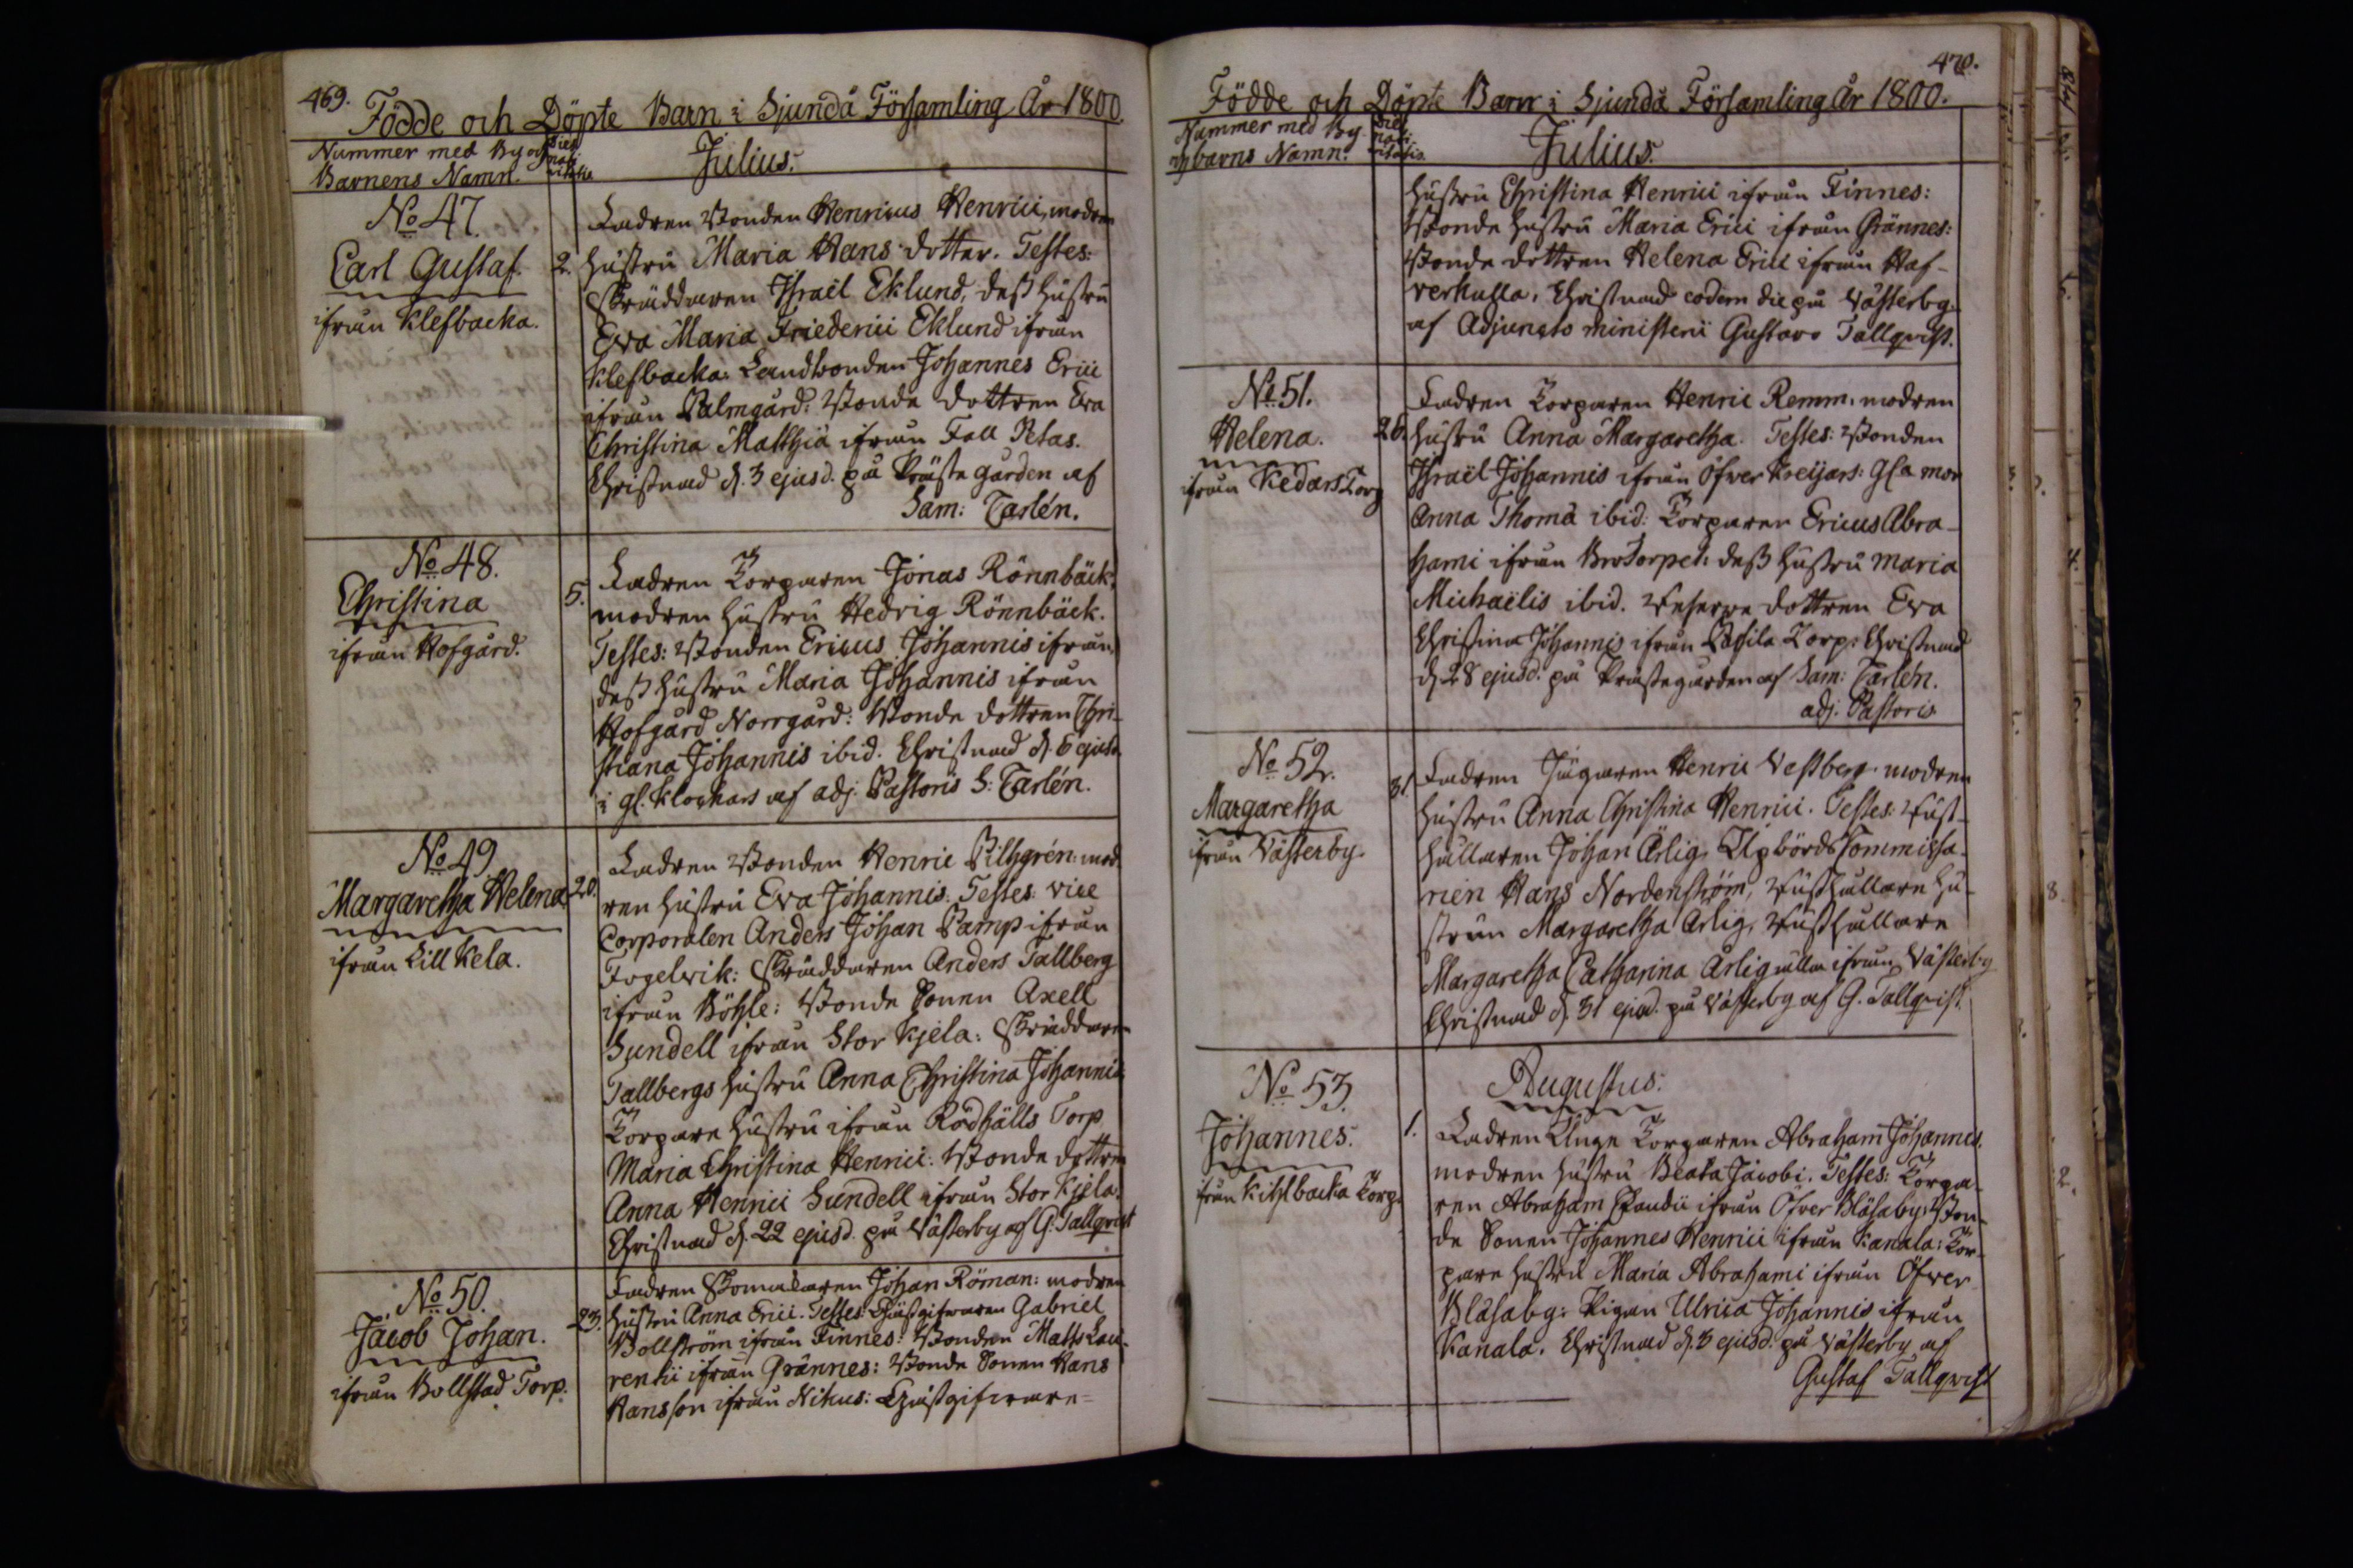 469.
Födde och Döpte Barn i Sjundå Församling År 1800.
Nummer med By och
Barnens Namn.
Dies
nati
vitatis
Julius.
No 47.
Carl Gustaf.
ifrån Klefbacka.
2.
Fadren Bonden Henricus Henrici, modren
hustru Maria Hans dotter. Testes:
Skräddaren Israël Eklund, dess hustru
Eva Maria Friederici Eklund ifrån
Klefbacka: Landbonden Johannes Erici
ifrån Palmgård: Bonde dottren Eva
Christina Matthiä ifrån Fall Petas.
Christnad d. 3 ejusd. på Prästegården af
Sam: Carlén.
No 48.
Christina
ifrån Hofgård.
5.
Fadren Torparen Jonas Rönnbäck,
modren hustru Hedvig Rönnbäck.
Testes: Bonden Ericus Johannis ifrån,
dess hustru Maria Johannis ifrån
Hofgård Norrgård: Bonde dottren Chri-
stiana Johannis ibid. Christnad d. 6 ejusd.
i gl. Klockars af adj. Pastoris S: Carlén.
No 49
Margaretha Helena
ifrån Lill Kela.
20.
Fadren Bonden Henric Pilhgrén: mod
ren hustru Eva Johannis. Testes: vice
Corporalen Anders Johan Pamp ifrån
Fogelvik: Skräddaren Anders Tallberg
ifrån Böhle: Bonde Sonen Axell
Sundell ifrån Stor Kjela: Skräddaren
Tallbergs hustru Anna Christina Johannis:
Torpare hustru ifrån Rödhälls Torp
Maria Christina Henrici: Bonde dottren
Anna Henrici Sundell ifrån Stor Kjela.
Christnad d. 22 ejusd. på Västerby af G. Tallqvist
No 50.
Jacob Johan.
ifrån Bollstad Torp.
23.
Fadren Skomakaren Johan Röman: modren
hustru Anna Erici. Testes: Gästgifvaren Gabriel
Bollström ifrån Finnes: Bonden Matts Lau-
rentii ifrån Grännes: Bonde Sonen Hans
Hansson ifrån Nikus: Gästgifvare-
470.
Födde och Döpte Barn i Sjundå Församling År 1800.
Nummer med By
och barns Namn.
Dies
nati
vitatis
Julius.
hustru Christina Henrici ifrån Finnes:
Bonde hustru Maria Erici ifrån Grännes:
Bonde dottren Helena Erici ifrån Haf-
verkulla. Christnad eodem die på Västerby
af Adjuncto ministerii Gustavo Tallqvist.
No 51.
Helena.
ifrån Kedars Torp
26.
Fadren Torparen Henric Remm, modren
hustru Anna Margaretha. Testes: Bonden
Israël Johannis ifrån Öfver Kreijars: Gla mor
Anna Thomä ibid: Torparen Ericus Abra-
hami ifrån BroTorpet: dess hustru Maria
Michaëlis ibid. dottren Eva
Christina Johannis ifrån Torp: Christnad
d. 28 ejusd. på Prästegården af Sam: Carlén.
adj. Pastoris
No 52.
Margaretha
ifrån Västerby.
31.
Fadren Jägaren Henric Vestberg, modren
hustru Anna Christina Henrici. Testes: Rust-
hållaren Johan Ärlig, UpbördsCommissa-
rien Hans Nordenström, Rusthållare hu-
strun Margaretha Ärlig, Rusthållare
Margaretha Catharina Ärlig alla ifrån Västerby
Christnad d. 31 ejusd. på Västerby af G. Tallqvist.
No 53.
Johannes.
ifrån Kihlbacka Torp.
Augustus.
1.
Fadren Unge Torparen Abraham Johannis.
modren hustru Beata Jacobi. Testes: Torpa-
ren Abraham ifrån Öfver Blåsaby: Bon-
de Sonen Johannes Henrici ifrån Kanala: Tor-
pare hustru Maria Abrahami ifrån Öfver
Blåsaby: Pigan Ulrica Johannis ifrån
Kanala. Christnad d. 3 ejusd. på Västerby af
Gustaf Tallqvist